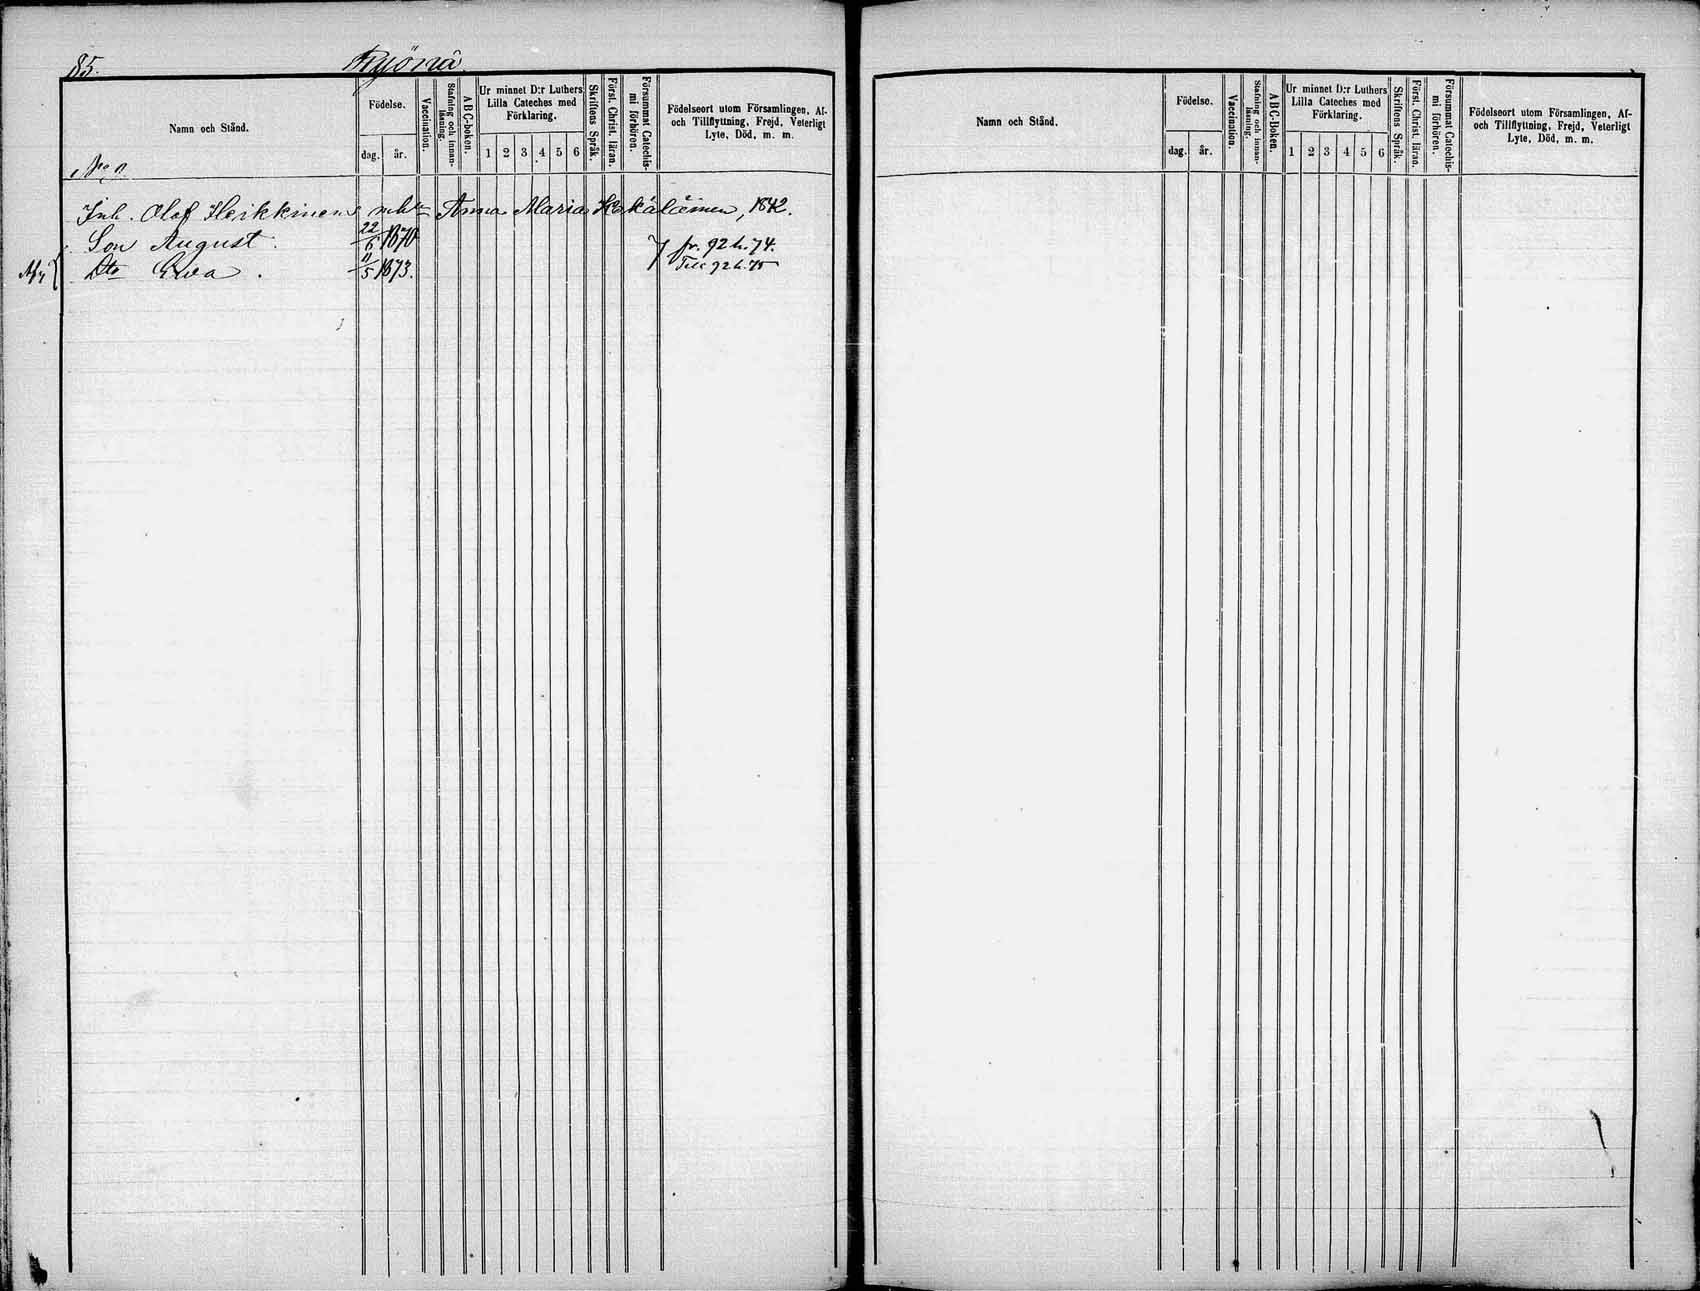 85.
Namn och Stånd.
Födelse.
dag.
år.
Vaccination.
Stafning och innanläsning.
ABC-boken.
Ur minnet D:r Luthers Lilla Cateches med Förklaring.
1 2 3 4 5 6
Skriftens Språk.
Först. Christ. läran.
Försummat Catechismi förhören.
Födelseort utom Församlingen, Af-
och Tillflyttning, Frejd, Veterligt
Lyte, Död, m. m.
Inh. Olof Heikkinens Anna Maria 1842.
Son August. 22/6 1870 fr. 92 h. 74.
Dtr Ewa. 11/5 1873. Till 92 h. 75
Namn och Stånd.
Födelse.
dag.
år.
Vaccination.
Stafning och innanläsning.
ABC-boken.
Ur minnet D:r Luthers Lilla Cateches med Förklaring.
1 2 3 4 5 6
Skriftens Språk.
Först. Christ. läran.
Försummat Catechismi förhören.
Födelseort utom Församlingen, Af-
och Tillflyttning, Frejd, Veterligt
Lyte, Död, m. m.